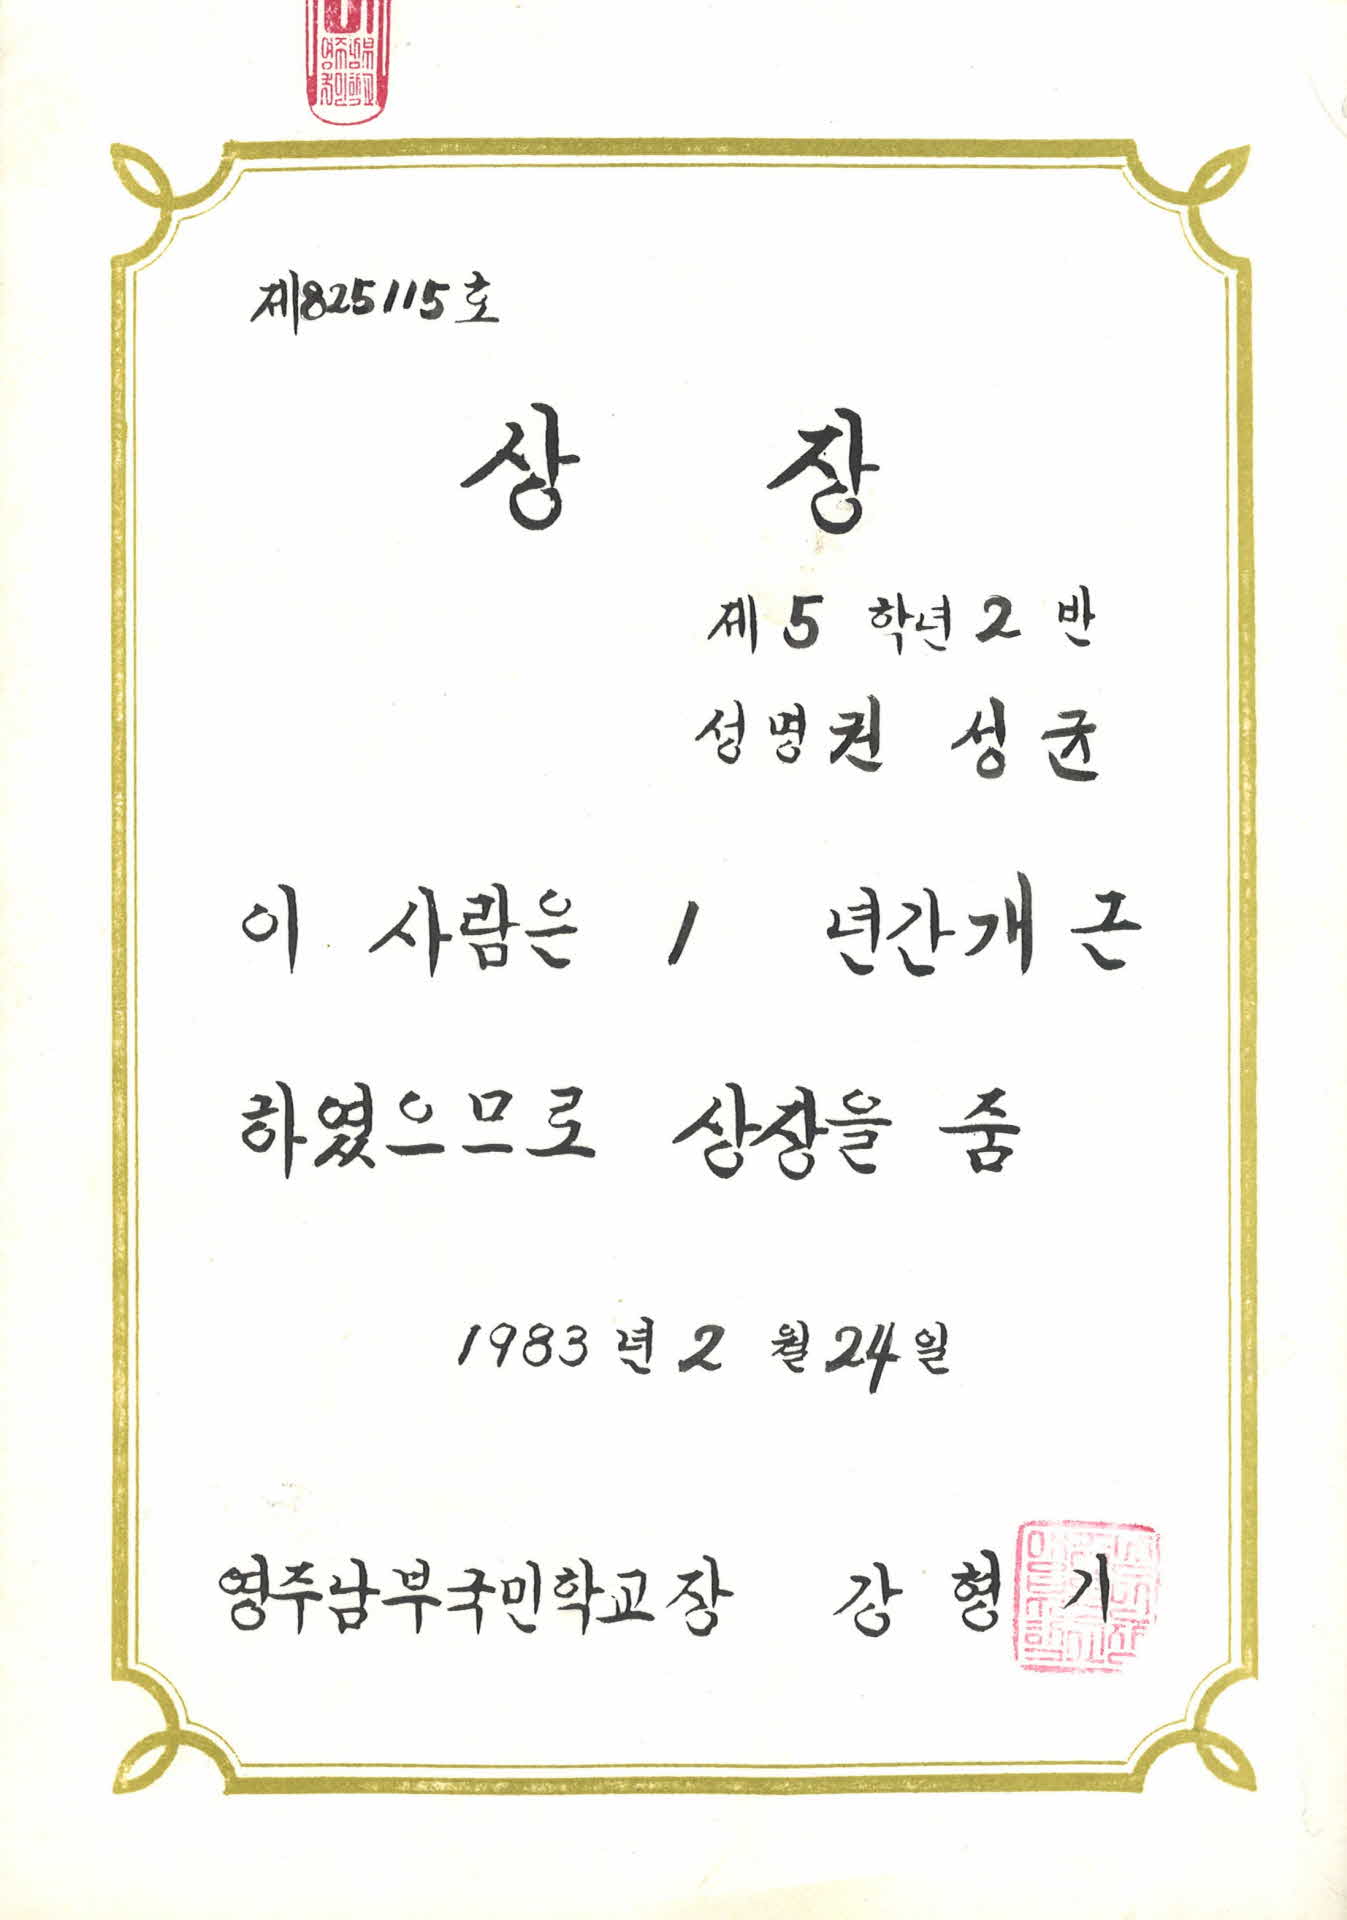 제825115호
상 장
제 5 학년 2 반
성명 권 성균
이 사람은 1 년간 개근
하였으므로 상장을 줌
1983년 2 월 24일
영주남부국민학교장 강 형 기